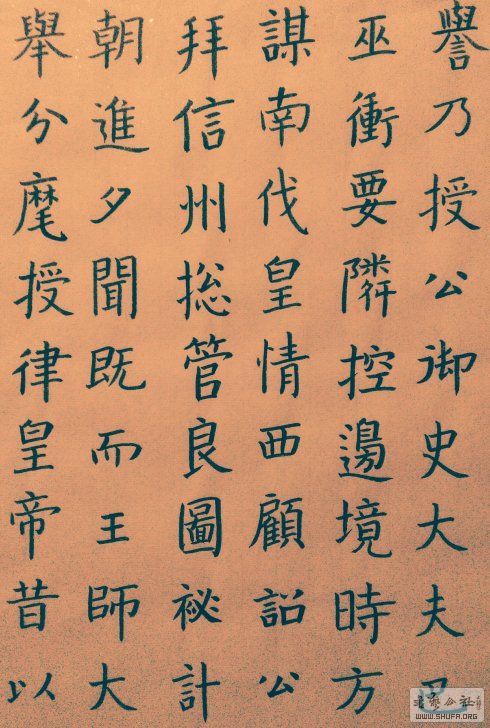 譽乃授公御史大夫巴
巫衝要隣控邊境時方
謀南伐皇情西顧詔公
拜信州揔管良圖祕計
朝進夕聞既而王師大
舉分麾授律皇帝昔以
WWW.SHUFA.ORG